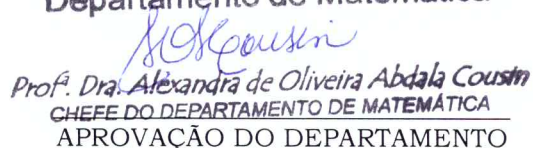 Departamento de Matemática
Profª. Dra. Alexandra de Oliveira Abdala Cousin
CHEFE DO DEPARTAMENTO DE MATEMÁTICA
APROVAÇÃO DO DEPARTAMENTO